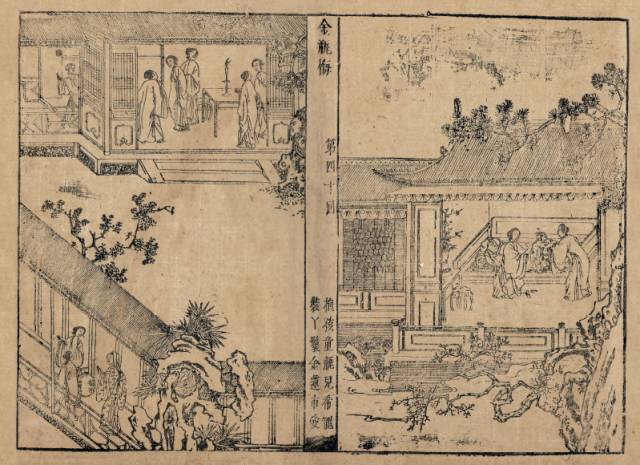 金瓶梅
第四十回
抱孩童瓶兒希寵
裝丫鬟金蓮市愛